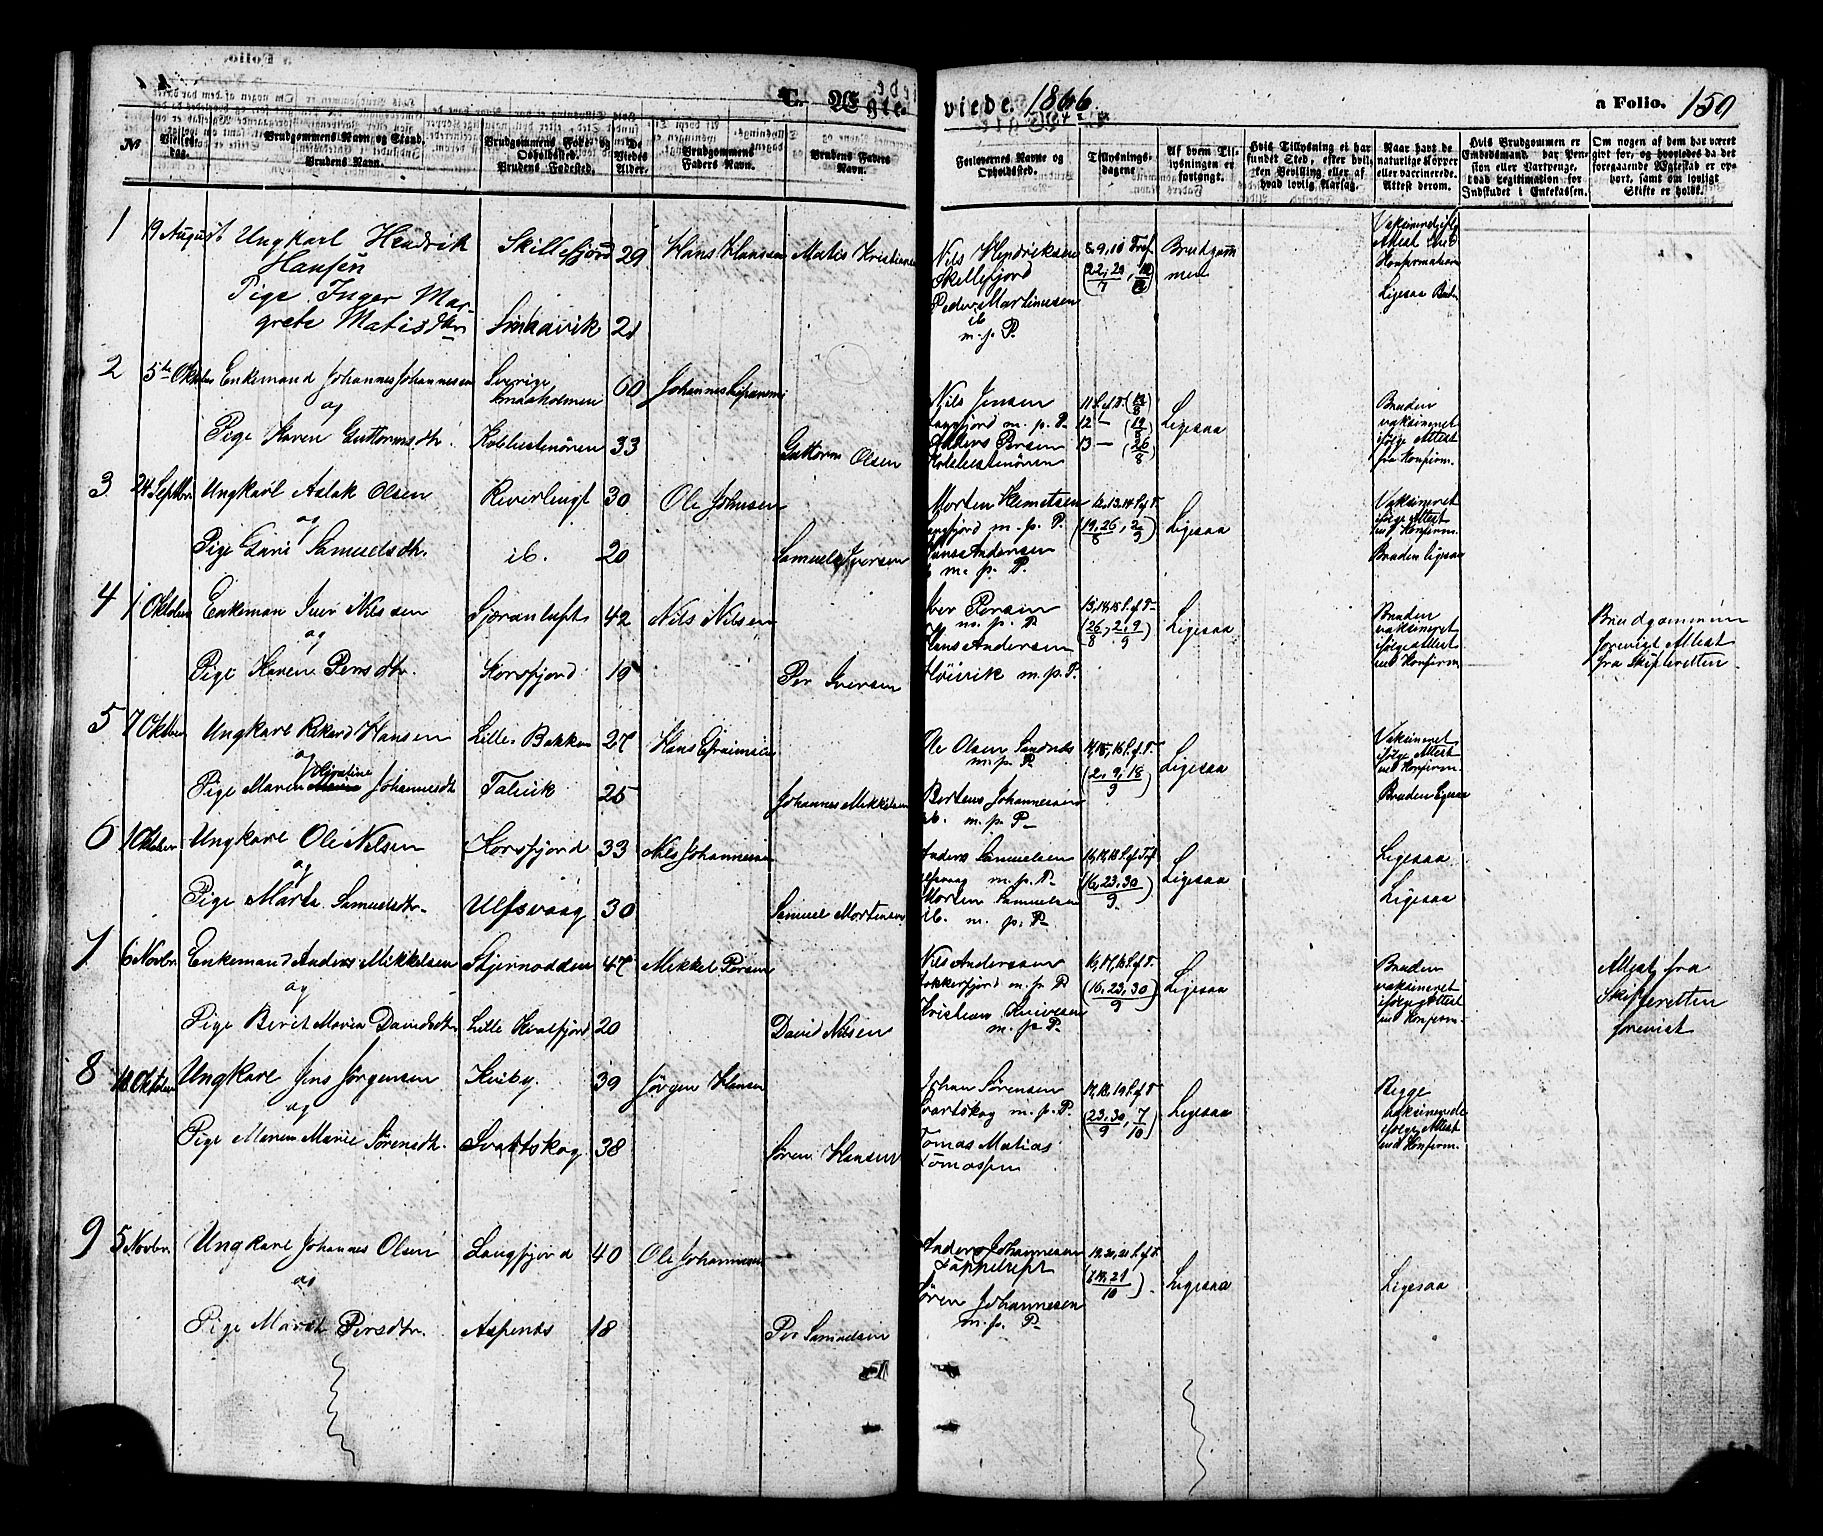 C. Ægte-
viede. 1866.
a Folio. 150
No
Vielses-
dag.
Brudgommens Navn og Stand.
Brudens Navn.
Brudgommens Føde- og
Opholdssted.
Brudens Fødested.
De
Viedes
Alder.
Brudgommens
Faders Navn.
Brudens Faders
Navn.
Forlovernes Navne og
Opholdssted.
Tillysnings-
dagene
Af hvem Til-
lysningen er
forlangt.
Hvis Tillysning ei har
fundet Sted, efter hvil-
ken Bevilling eller af
hvad lovlig Aarsag.
Naar havt de
naturlige Kopper
eller vaccinerede.
Attest derom.
Hvis Brudgommen er
Embedsmand, har Pen-
sion eller Vartpenge,
hvad Legitimation for
Indskudet i Enkekassen.
Om nogen af dem har været
givt før, og hvorledes da det
foregaaende Ægteskab er op-
hørt, samt om lovligt
Skifte er holdt.
1 19 August Ungkarl Hendrik Skillefjord 29 Hans Hansen Matis Kristiansen
Hansen
Pige Inger Mar-
grete Matisdtr. 21
Nils Hendriksen 8, 9, 10 Tref. Brudgom
Skillefjord men
Peder Martinusen
ib
m. p. P.
Ligesaa
2 5te Oktober Enkemand Johannes Johannesen Sverige 60 Johannes
og
Pige Karen Guttormsdtr. 33 Guttorm Olsen
Nils Jensen 11 S. ef. T. (12/8) Ligesaa
m. p. P. 12 — (19/8)
Anders Persen 13 — (26/8)
Bruden
vaksineret
ifølge Attest
fra Konfirm.
3 24 Septbr. Ungkarl Aslak Olsen 30 Ole Johnsen
og
Pige Gari Samuelsdtr. ib. 20 Samuel Iversen
Morten Klemetsen 12, 13, 14 S. ef. T.
m. p. P. (19, 26/8, 2/9) Ligesaa
Hans Andersen
m. p. P.
Vaksineret
ifølge Attest
ved Konfirm.
Bruden ligesaa
4 1 Oktober Enkeman Iver Nilsen 42 Nils Nilsen
og
Pige Karen Persdtr. Korsfjord 19 Per Iversen
Iver Persen
m. p. P. (26/8, 2, 9/9) Ligesaa
Hans Andersen
m. p. P.
Bruden
vaksineret
ifølge Attest
ved Konfirm.
Brudgommen
forevist Attest
fra Skifteretten
5 7 Oktober Ungkarl Rikard Hansen Lille Bakken 27 Hans Efraimsen
og
Pige Maren Johannesdtr. Talvik 25 Johannes Mikkelsen
Ole Olsen
m. p. P. Ligesaa
Johannesen
ib. m. p. P.
Vaksineret
ifølge Attest
ved Konfirm.
Bruden ligesaa
6 1 Oktober Ungkarl Ole Nilsen Korsfjord 33 Nils Johannesen
og
Pige Marta Samuelsdtr. Ulfsvaag 30 Samuel Mortensen
Anders Samuelsen
m. p. P. (16, 23, 30/9) Ligesaa
Morten Samuelsen
ib. m. p. P.
Ligesaa
Ligesaa
7 6 Novbr. Enkemand Anders Mikkelsen Stjernodden 47 Mikkel Persen
og
Pige Berit Maria Davidsdtr. Lille Kvalfjord 20 David Nilsen
Nils Andersen 16, 17, 18 S. ef. T.
m. p. P. (16, 23, 30/9) Ligesaa
Kristian
m. p. P.
Bruden
vaksineret
ifølge Attest
ved Konfirm.
Attest fra
Skifteretten
forevist
8 18 Oktober Ungkarl Jens Jørgensen Kviby 39 Jørgen Hansen
og
Pige Maren Marie Sørensdtr. Svartskog 38 Søren Hansen
Johan Sørensen 17, 18, 19 S. ef. T.
Svartskog m. p. P. (23, 30/9, 7/10) Ligesaa
Tomas Matias
Tomassen
Begge
vaksinerede
ifølge Attest
ved Konfirm.
9 5 Novbr. Ungkarl Johannes Olsen Langfjord 40 Ole Johannesen
og
Pige Marit Persdtr. Aspenes 18 Per Samuelsen
Anders Johannesen 19, 20, 21 S. ef. T.
(7, 14, 21/10) Ligesaa
Søren Johannesen
m. p. P.
Ligesaa